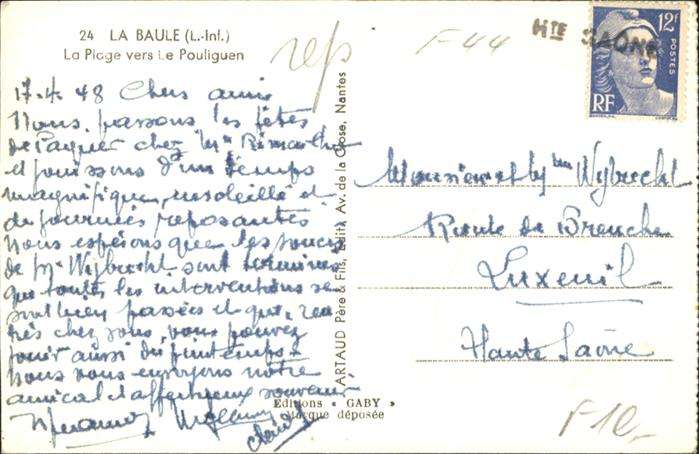 24 LA BAULE (L.-Inf.)
La Plage vers Le Pouliguen
rep
F-44
HTE SAONE
12F
POSTES
RF
17-4-48 Chers amis
Nous passons les fêtes
de Paques chez Mme
et jouissons d'un temps
magnifique, ensoleillé et
de journées reposantes
Nous espérons que les soucis
de Mr Wybrecht sont terminés
que toutes les interventions se
sont bien passées et que, ren-
trés chez vous, vous pouvez
jouir aussi du printemps.
Nous vous envoyons notre
amical et affectueux souvenir
ARTAUD Père & Fils, Édit. Av. de la Close, Nantes
Editions « GABY »
Marque déposée
Monsieur et Mme Wybrecht
Route de Breuche
Luxeuil
Haute Saône
F10,-